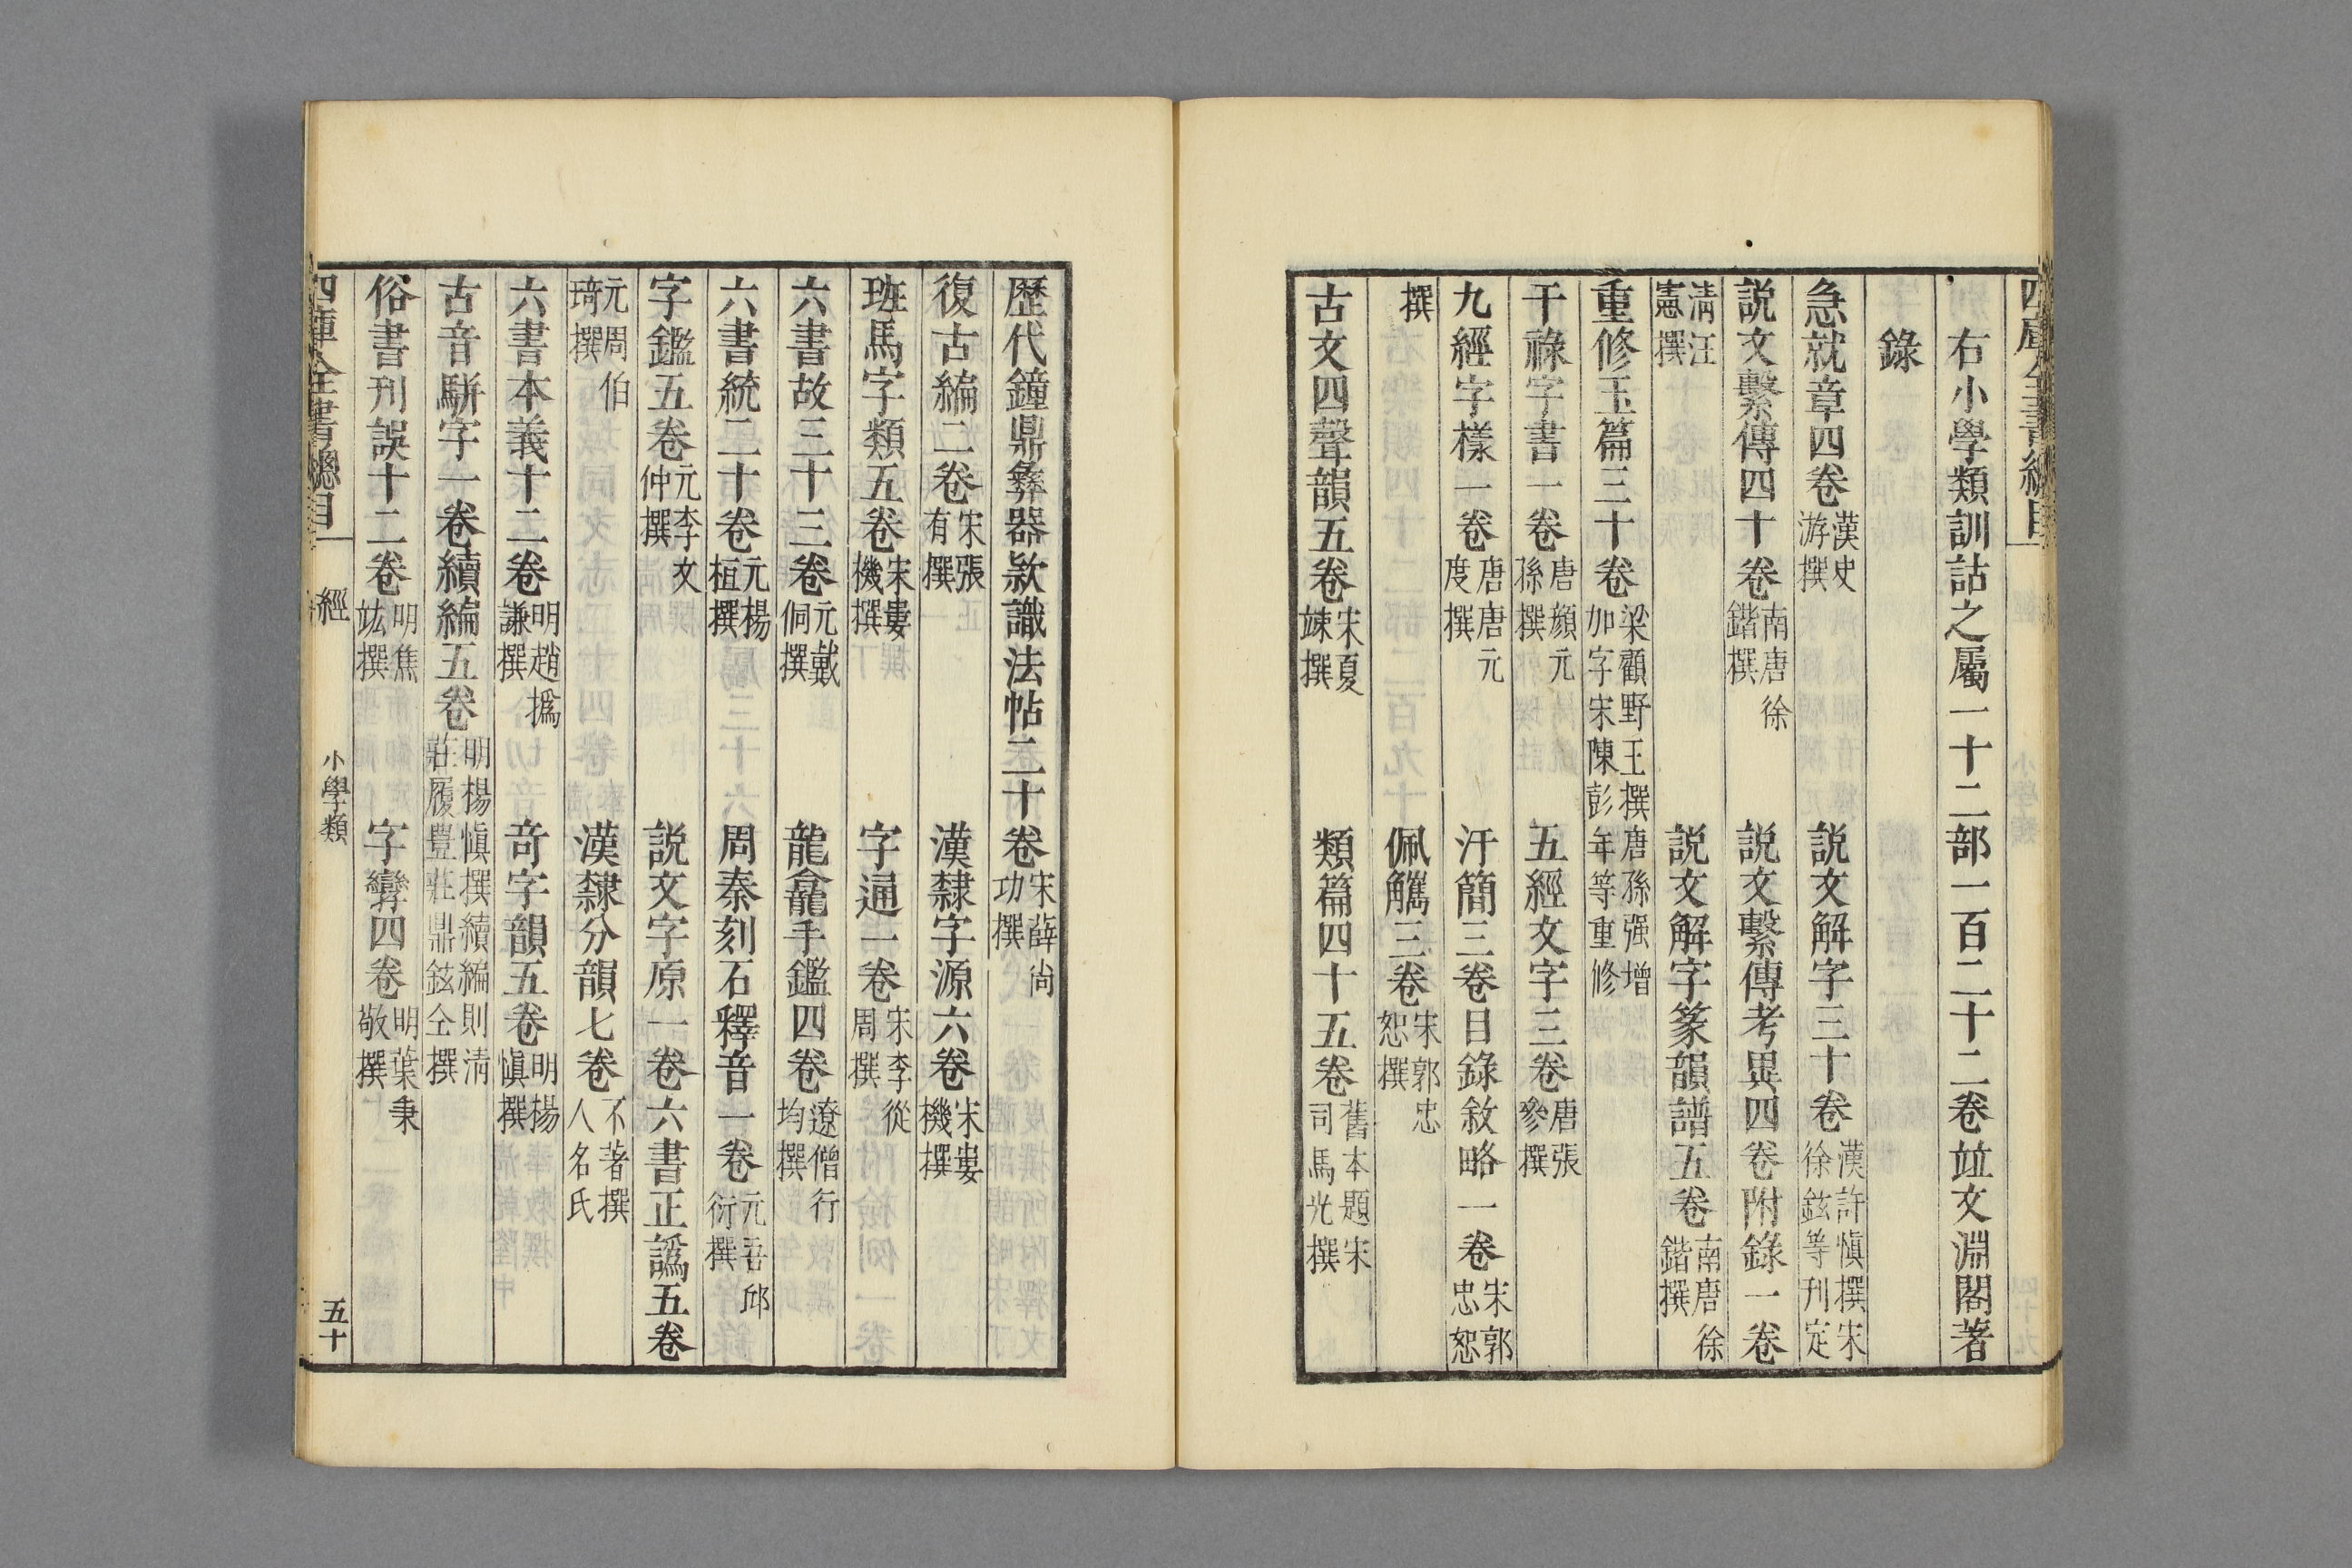 四庫全書總目
右小學類訓詁之屬一十二部一百二十二卷竝文淵閣著
錄
急就章四卷漢史游撰　說文解字三十卷漢許愼撰宋徐鉉等刊定
說文繫傳四十卷南唐徐鍇撰　說文繫傳考異四卷附錄一卷
淸汪憲撰　說文解字篆韻譜五卷南唐徐鍇撰
重修玉篇三十卷梁顧野王撰唐孫强增加字宋陳彭年等重修
干祿字書一卷唐顏元孫撰　五經文字三卷唐張參撰
九經字樣一卷唐唐元度撰　汗簡三卷目錄敘略一卷宋郭忠恕
撰　佩觿三卷宋郭忠恕撰
古文四聲韻五卷宋夏竦撰　類篇四十五卷舊本題宋司馬光撰
歷代鐘鼎彝器款識法帖二十卷宋薛尚功撰
復古編二卷宋張有撰　漢隸字源六卷宋婁機撰
班馬字類五卷宋婁機撰　字通一卷宋李從周撰
六書故三十三卷元戴侗撰　龍龕手鑑四卷遼僧行均撰
六書統二十卷元楊桓撰　周秦刻石釋音一卷元吾邱衍撰
字鑑五卷元李文仲撰　說文字原一卷六書正譌五卷
元周伯琦撰　漢隸分韻七卷不著撰人名氏
六書本義十二卷明趙撝謙撰　奇字韻五卷明楊愼撰
古音駢字一卷續編五卷明楊愼撰續編則淸莊履豐莊鼎鉉仝撰
俗書刊誤十二卷明焦竑撰　字孿四卷明葉秉敬撰
四庫全書總目　經　小學類　五十